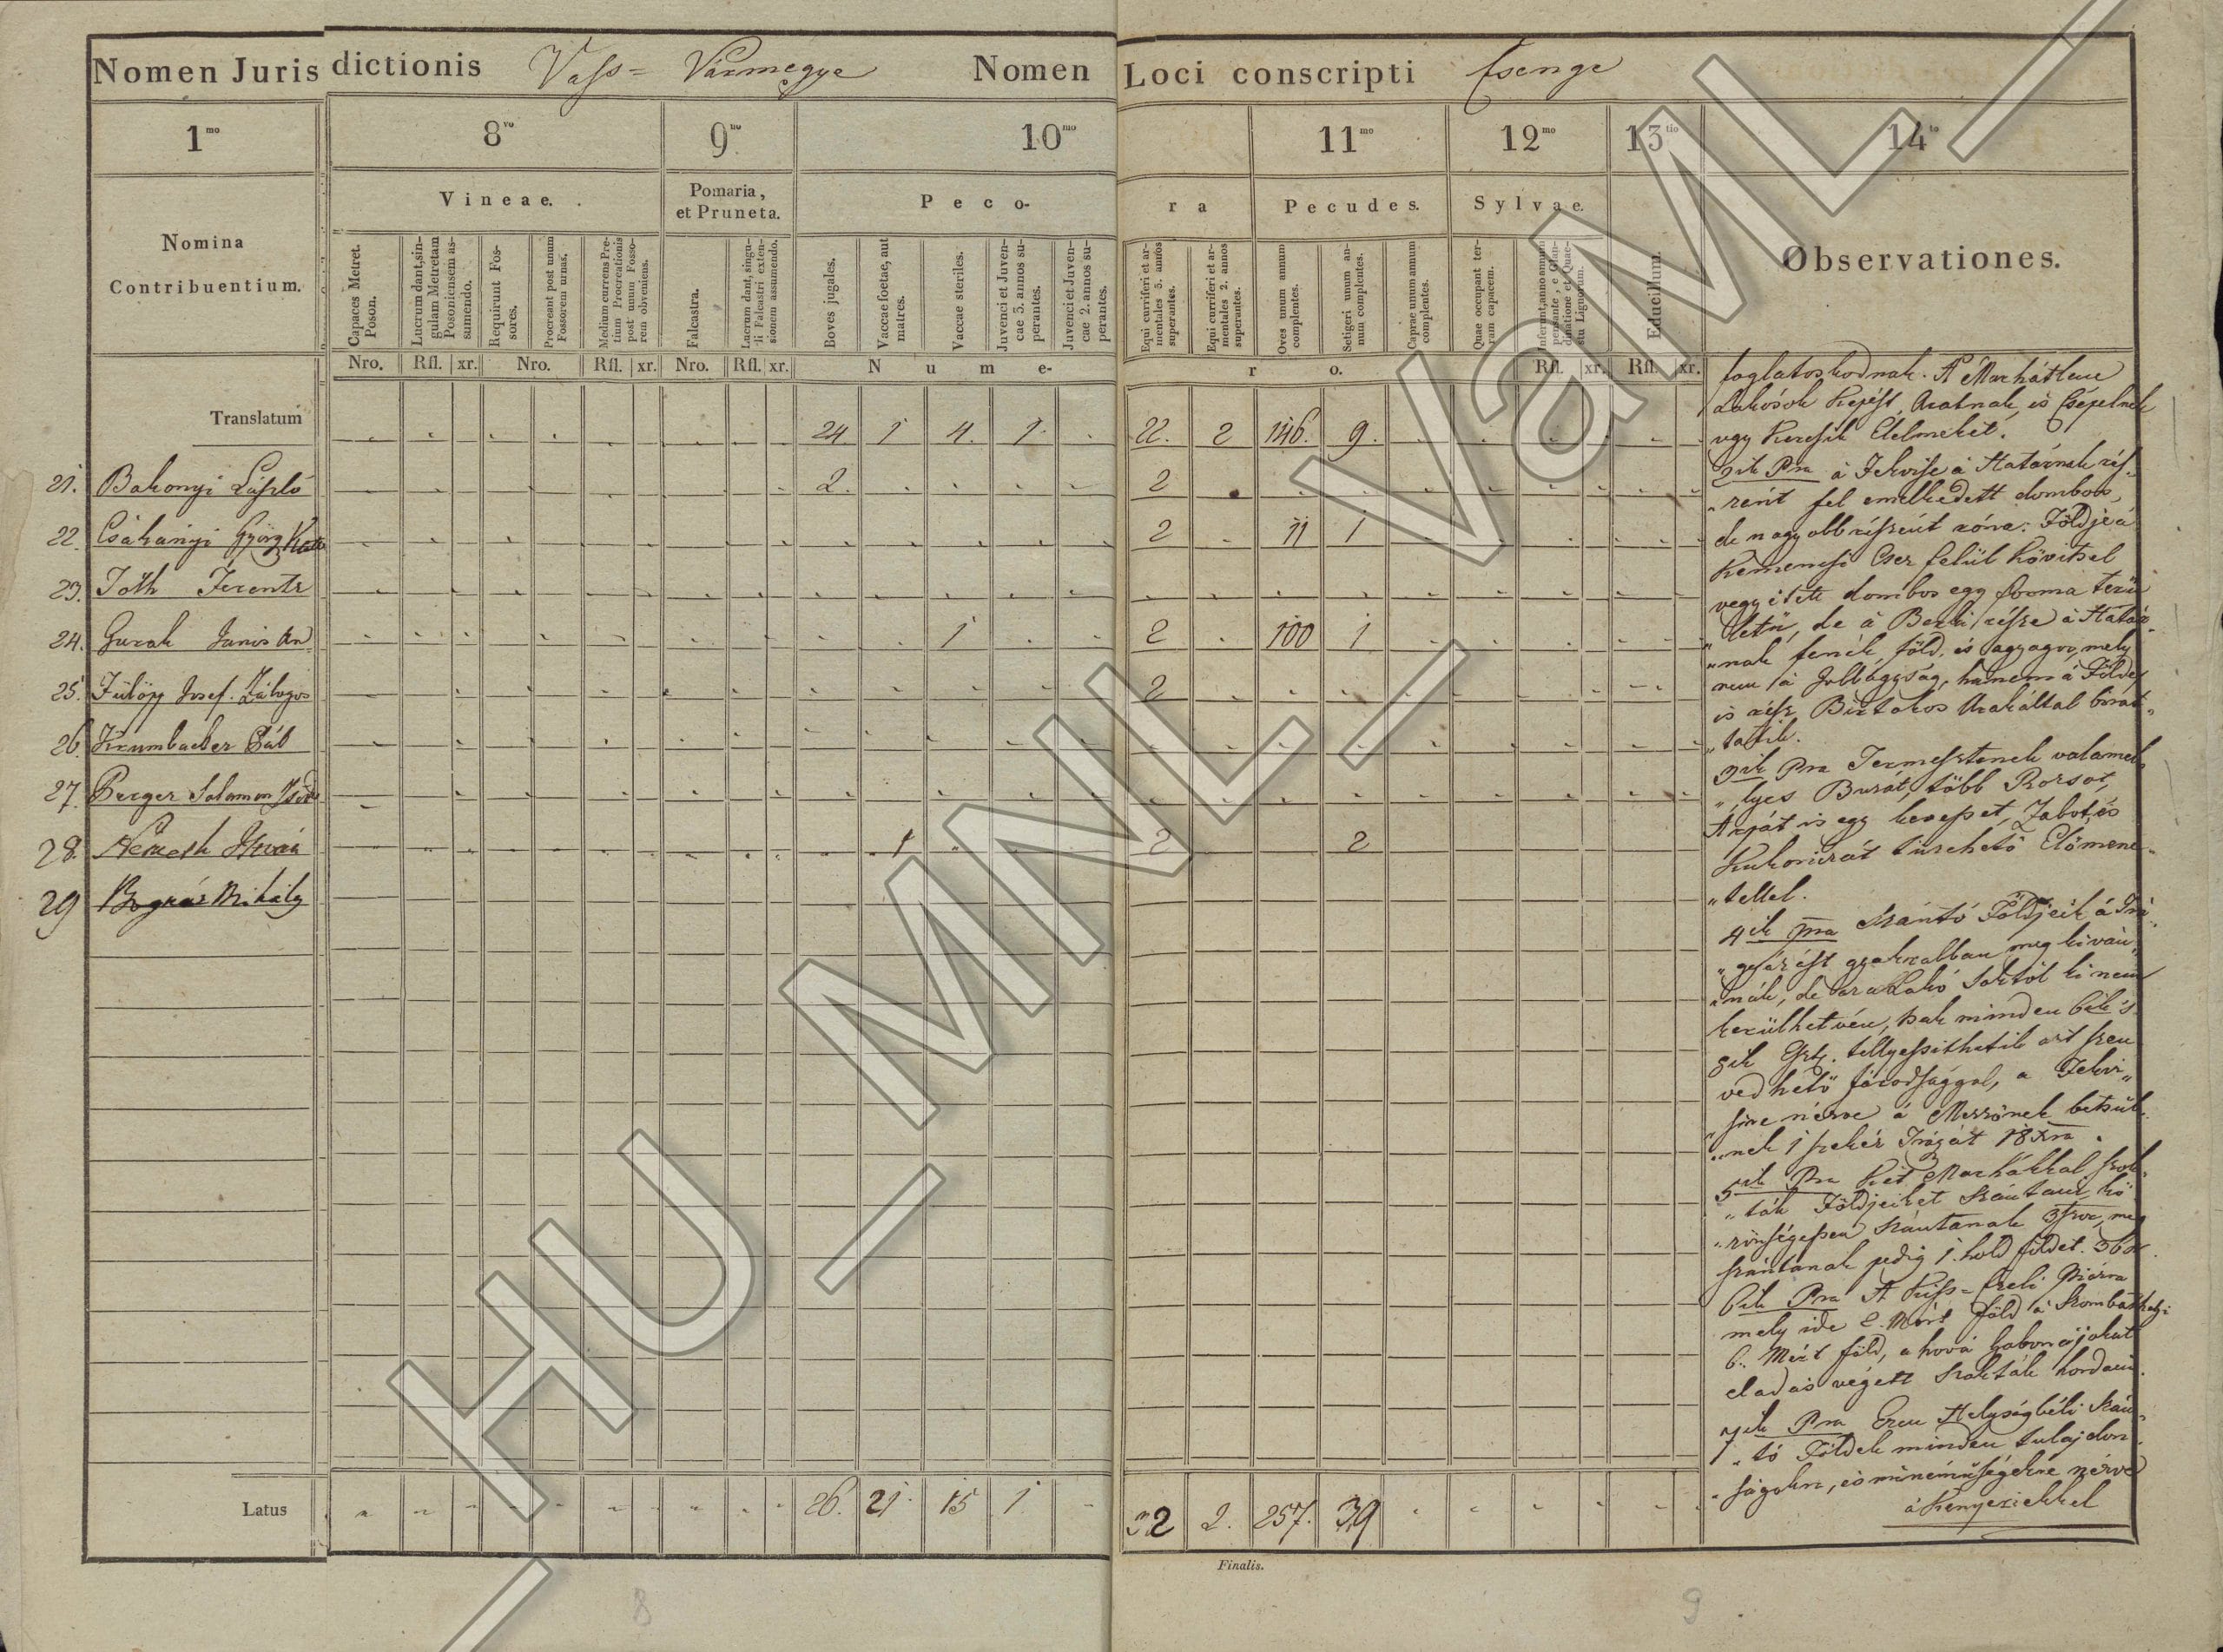 Nomen Jurisdictionis Vass= Vármegye Nomen Loci conscripti Csenge
1mo 8vo 9no 10mo 11mo 12mo 13tio 14to
Nomina Contribuentium.
Vineae. Pomaria, et Pruneta. Peco- ra Pecudes. Sylvae. Educillum. Observationes.
Capaces Metret. Poson.
Lucrum dant, singulam Metretam Posoniensem assumendo.
Requirunt Fossores.
Procreant post unum Fossorem urnas.
Medium currens Pretium Procreationis post unum Fossorem obveniens.
Falcastra.
Lucrum dant, singuli Falcastri extensionem assumendo.
Boves jugales.
Vaccae foetae, aut matres.
Vaccae steriles.
Juvenci et Juvencae 3. annos superantes.
Juvenci et Juvencae 2. annos superantes.
Equi curriferi et armentales 3. annos superantes.
Equi curriferi et armentales 2. annos superantes.
Oves unum annum complentes.
Setigeri unum annum complentes.
Caprae unum annum complentes.
Quae occupant terram capacem.
Nro. Rfl. xr. Nro. Rfl. xr. Nro. Rfl. xr. N u m e- r o. Rfl. xr. Rfl. xr.
Translatum 24 1 4. 1. 22. 2 146. 9.
21. Bakonyi László 2. 2
22. Csákányi György 2 11 1
23. Tóth Ferentz
24. Gurah Janis 1 2 100 1
25. Fülöp Josef. Zálogos 2
26. Krumbacher Pál
27. Berger Salamon
28. Németh István 1 2 2
29 Bognár Mihály
Latus 26. 21. 15 1 32 2. 257. 39
foglatoskodnak. A Marhátlan
Lakósok Aratnak, és Csépelnek
ugy Keresik Élelmeket.
2ik Pra à Fekvése à Határnak rész-
„rént fel emelkedett dombos,
de nagyobb részént róna. Földje à
Kemenesi Cser felül Kövitsel
vegyitett dombos egy forma terü
„letü, de à Berki része à Határ-
„nak fenék föld, és agyagos, mely
nem à Jobbágyság, hanem à Földes
is rész Birtokos Urak által birat-
„tatik.
3ik Pra Termesztenek valamely
„lyes Buzát, több Rozsot,
Árpát is egy keveset, Zabot, és
Kukoriczát türhető Előmene-
„tellel.
4ik Pra Szántó Földjeik à Trá-
„gyázást gyakrabban meg kiván-
„nák, de ki nem
kerülhetvén, tsak minden 6ik s
8ik Eszt. tellyesithetik azt szen
vedhető fáradsággal, a Fekvé„
„sére nézve à Mezzőnek betsül-
„nek 1 szekér Trágyát 18 xra.
5ik Pra Két Marhákkal szok-
„ták Földjeiket szántani, kö
„zönségesen szántanak 3szor, meg
szántanak pedig 1. hold földet. 36 x.
6ik Pra A Kiss=Czeli Piárra
mely ide 2. Mért föld à Szombathelyi
6. Mért föld, a hová gabonájokat
eladás végett szokták hordani.
7ik Pra Ezen Helységbéli Szán-
„tó Földek minden tulajdon-
„ságokra, és minéműségekre nézve
à Kenyeriekkel
Finalis.
8
9
HU_MNL_VaML_